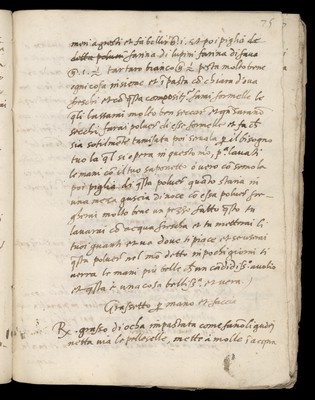 75
meri agresti et fa bellis.i et poi piglia le
detta polvere farina di lupini farina di fava
tartaro bianco pesta molto bene
ogni cosa insieme et i pasta cō chiara d'ova
freschi et cō qsta compositi fami formelle le
qli lassarai molto ben seccar et qn sarano
secchi farai polver di esse formelle et fa ch
sia sotilmēte tamisata poi serbala il bisogno
tuo la ql si opera in questi mo, p.a lavati
le mani cō il tuo saponetto o vero cō semola
poi piglia di qsta polver quāto staria in
una meza guscia di noce cō essa polver fre-
gherai molto bene un pezzo fatto qsto tu
lavarai cō acqua frescha et tu metterai li
tuoi guanti et va dove ti piace et se userai
qsta polver nel mo detto in pochi giorni ti
verrà le mani più belle ch un cādidis.o avolio
et qsta è una cosa bellis.a et vera
Grassetto p mano et faccia
Rx. grasso di ocha impastata come fāno li guāti
netta ma le pelleselle, mette à molle i acqua